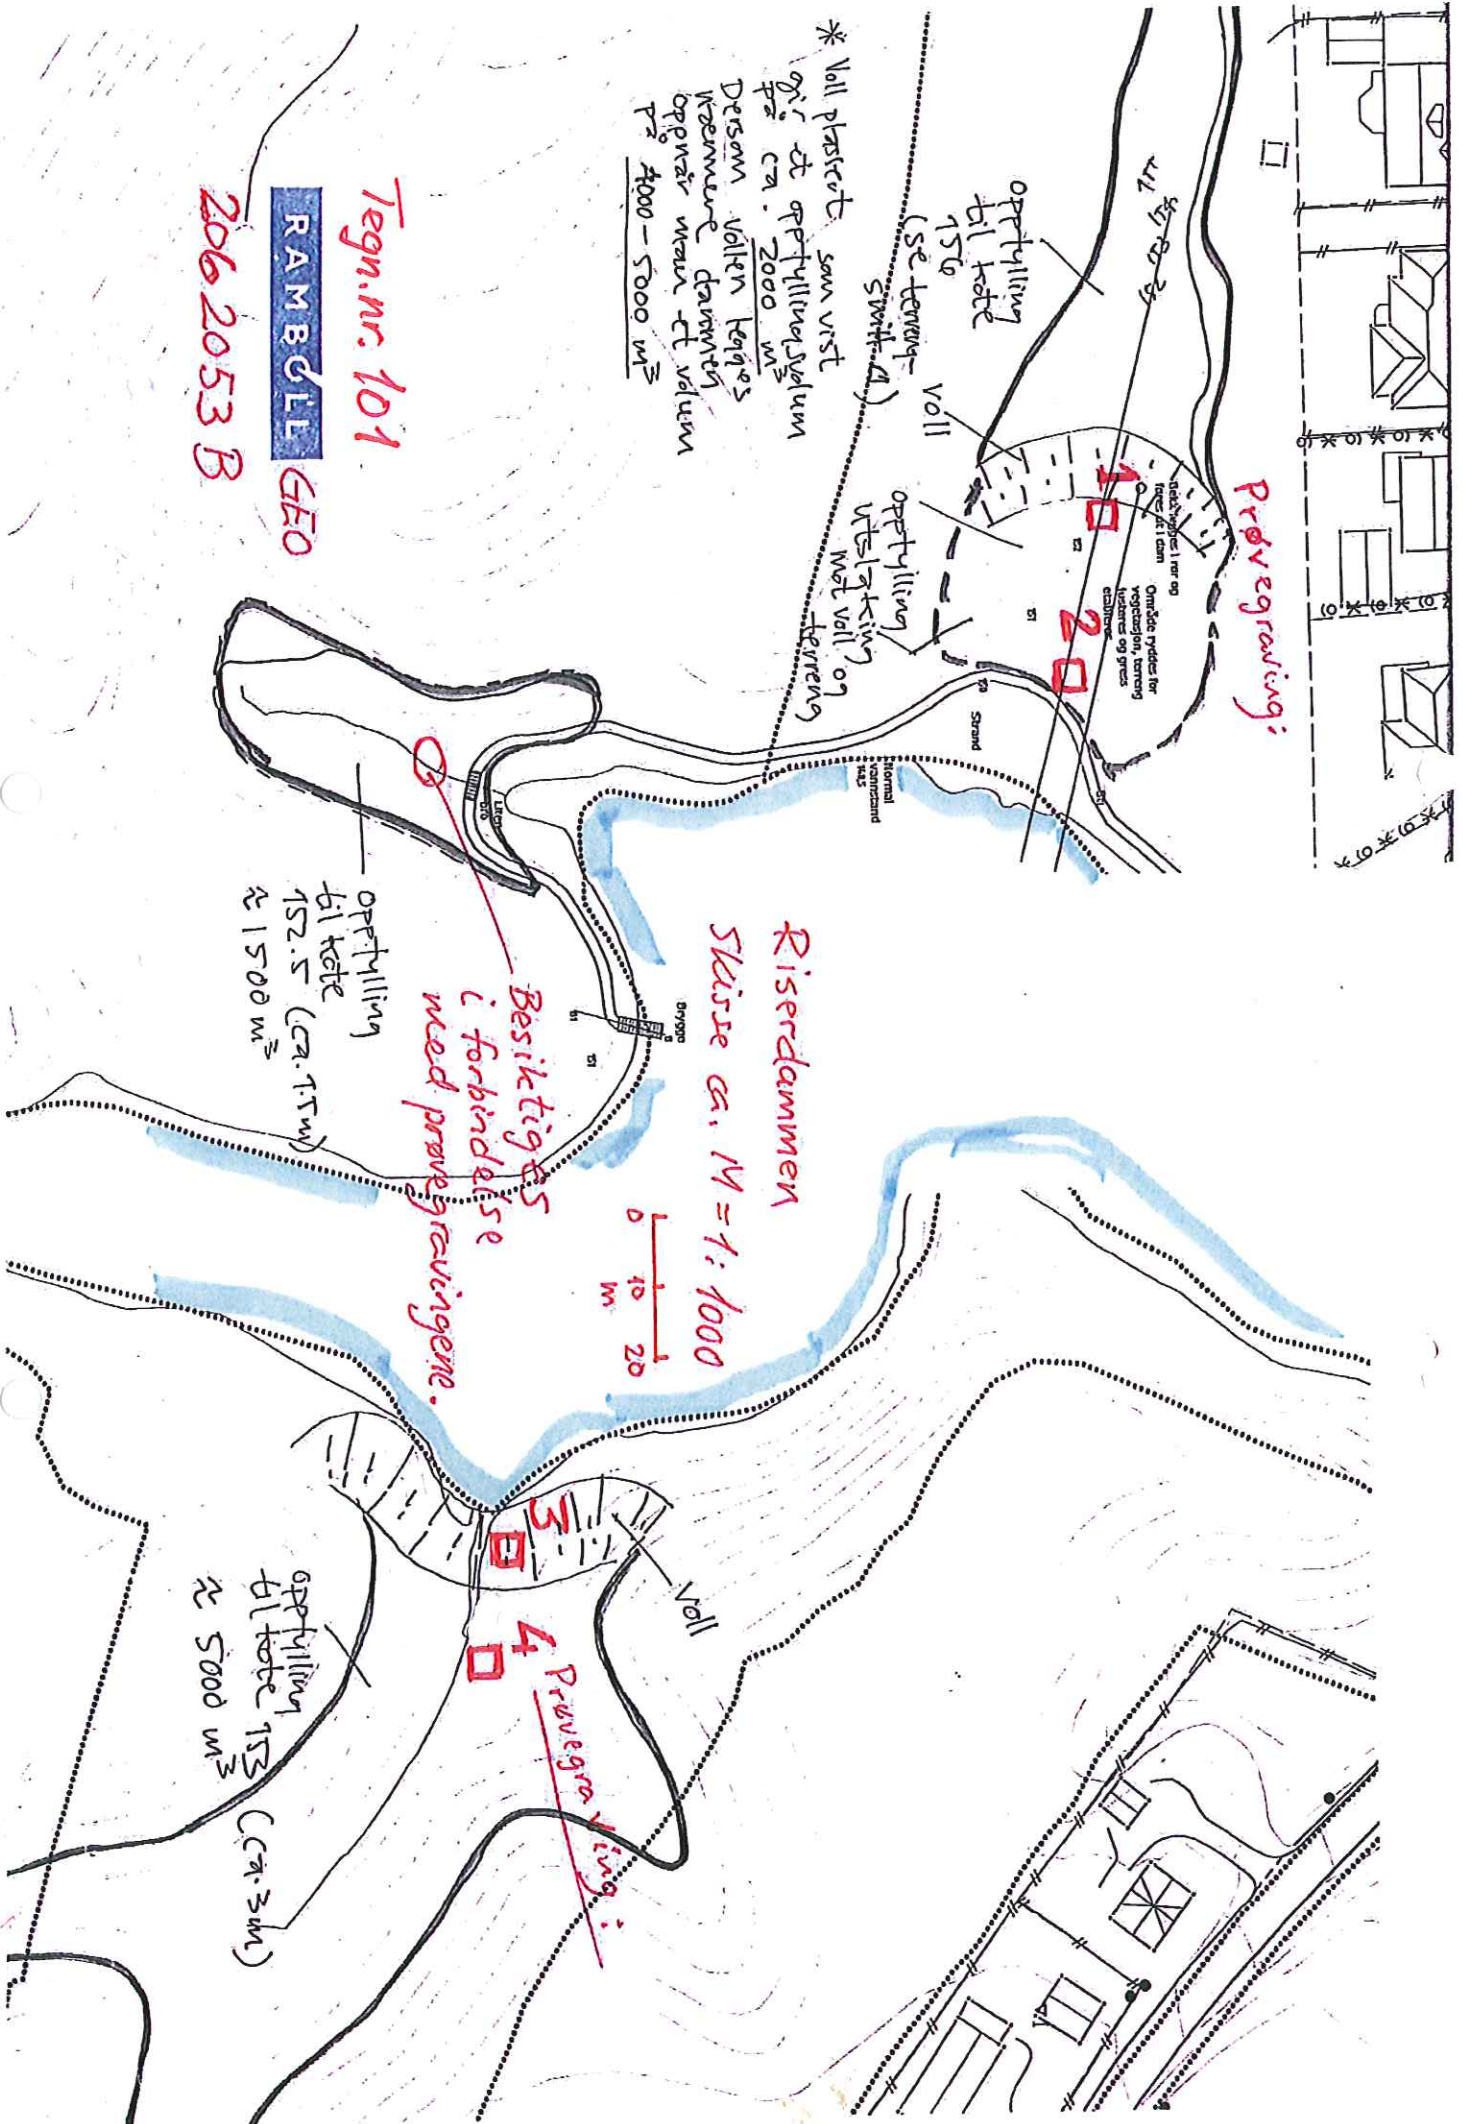 Prøvegraving:
1
2
Bekk legges i rør og
føres ut i dam
Område ryddes for
vegetasjon, terreng
justeres og gress
etableres
157
Strand
Normal
vannstand
Oppfylling
til kote
156
(se terreng-
snitt A)
voll
oppfylling
utslaking
mot voll og
terreng
* Voll plassert som vist
gir et oppfyllingsvolum
på ca. 2000 m³
Dersom vollen legges
nærmere dammen
oppnår man et volum
på 4000-5000 m³
Tegn.nr. 101
RAMBOLL GEO
2062053B
Riserdammen
Skisse ca. M = 1:1000
0 10 20
m
Brygge
151
Liten
bro
Besiktiges
i forbindelse
med prøvegravingene.
oppfylling
til kote
152.5 (ca. 1.5m)
≈ 1500 m³
3
voll
4 Prøvegraving:
oppfylling
til kote 153 (ca. 3m)
≈ 5000 m³